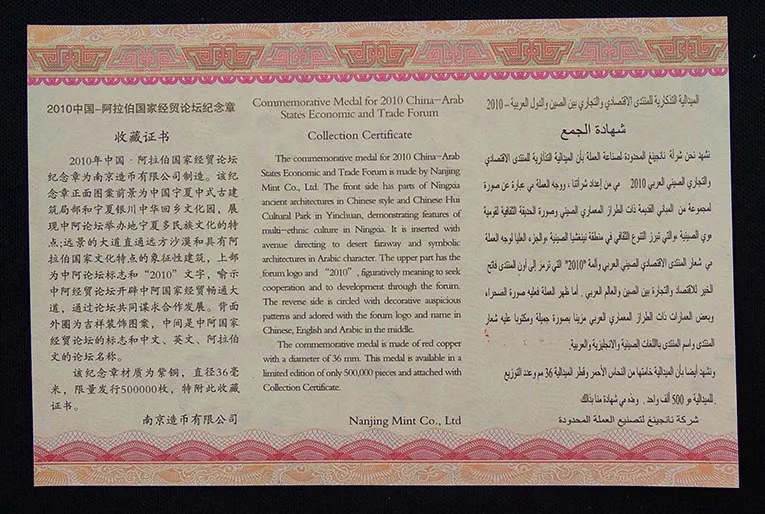 2010中国-阿拉伯国家经贸论坛纪念章
收藏证书
2010年中国·阿拉伯国家经贸论坛
纪念章为南京造币有限公司制造。该纪
念章正面图案前景为中国宁夏中式古建
筑局部和宁夏银川中华回乡文化园，展
现中阿论坛举办地宁夏多民族文化的特
点;远景的大道直通远方沙漠和具有阿
拉伯国家文化特点的象征性建筑，上部
为中阿论坛标志和“2010”文字，喻示
中阿经贸论坛开辟中阿国家经贸畅通大
道，通过论坛共同谋求合作发展。背面
外圈为吉祥装饰图案，中间是中阿国家
经贸论坛的标志和中文、英文、阿拉伯
文的论坛名称。
该纪念章材质为紫铜，直径36毫
米，限量发行500000枚，特附此收藏
证书。
南京造币有限公司
Commemorative Medal for 2010 China-Arab
States Economic and Trade Forum
Collection Certificate
The commemorative medal for 2010 China-Arab
States Economic and Trade Forum is made by Nanjing
Mint Co., Ltd. The front side has parts of Ningxia
ancient architectures in Chinese style and Chinese Hui
Cultural Park in Yinchuan, demonstrating features of
multi-ethnic culture in Ningxia. It is inserted with
avenue directing to desert faraway and symbolic
architectures in Arabic character. The upper part has the
forum logo and “2010”, figuratively meaning to seek
cooperation and to development through the forum.
The reverse side is circled with decorative auspicious
patterns and adored with the forum logo and name in
Chinese, English and Arabic in the middle.
The commemorative medal is made of red copper
with a diameter of 36 mm. This medal is available in a
limited edition of only 500,000 pieces and attached with
Collection Certificate.
Nanjing Mint Co., Ltd
الميدالية التذكارية للمنتدى الاقتصادي والتجاري بين الصين والدول العربية – 2010
شهادة الجمع
نشهد نحن شركة نانجينغ المحدودة لصناعة العملة بأن الميدالية التذكارية للمنتدى الاقتصادي
والتجاري الصيني العربي 2010 هي من إعداد شركتنا ، ووجه العملة هي عبارة عن صورة
لمجموعة من المباني القديمة ذات الطراز المعماري الصيني وصورة الحديقة الثقافية لقومية
هوي الصينية ،والتي تبرز التنوع الثقافي في منطقة نينغشيا الصينية ،والجزء العليا لوجه العملة
هي شعار المنتدى الاقتصادي الصيني العربي و "2010" التي ترمز إلى المنتدى فاتح
الخير للاقتصاد والتجارة بين الصين والعالم العربي . أما ظهر العملة فعليه صورة الصحراء
وبعض العمارات ذات الطراز المعماري العربي مزينا بصورة جميلة ومكتوبا عليه شعار
المنتدى واسم المنتدى باللغات الصينية والانجليزية والعربية.
ونشهد أيضا بأن الميدالية خامتها من النحاس الأحمر وقطر الميدالية 36 مم وعدد التوزيع
للميدالية هو 500 ألف واحد. وهذه هي شهادة منا بذلك.
شركة نانجينغ لتصنيع العملة المحدودة